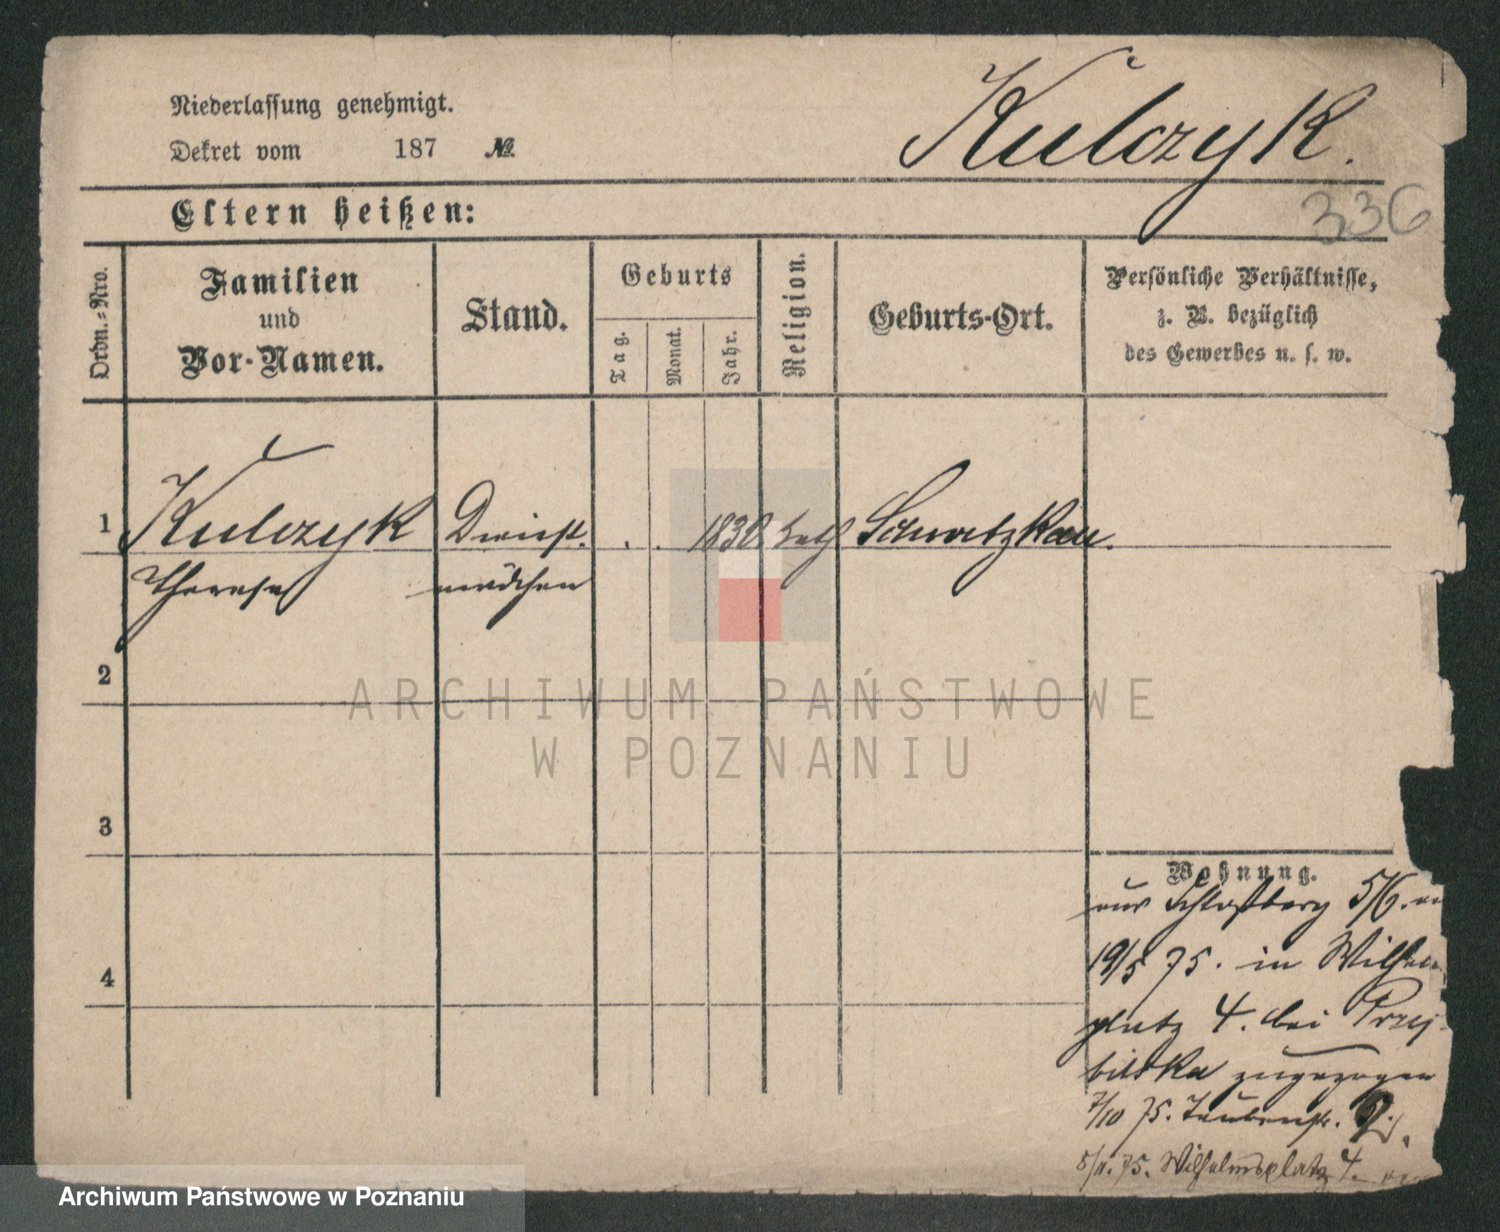 Niederlassung genehmigt.
Dekret vom 187 №
Kulczyk.
336
Eltern heißen:
Ordn.-Nro.
Familien
und
Vor-Namen.
Stand.
Geburts
Tag.
Monat.
Jahr.
Religion.
Geburts-Ort.
Persönliche Verhältnisse,
z. B. bezüglich
des Gewerbes u. s. w.
1 Kulczyk Dienst- . . 1838 kath Schwetzkau.
Therese mädchen
2
ARCHIWUM PAŃSTWOWE
W POZNANIU
3
Wohnung.
Schloßberg 5/6.
4
19/5 75. in Wilhelm
platz 4. bei Przy
bilska zugezogen
7/10 75. Taubenstr.
5/11. 75. Wilhelmsplatz 4.
Archiwum Państwowe w Poznaniu